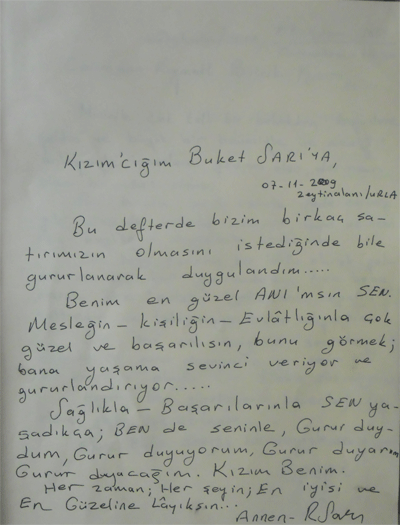 Kızım'cığım Buket SARI'YA,
07-11-2009
Zeytinalanı/URLA
Bu defterde bizim birkaç sa-
tırımızın olmasını istediğinde bile
gururlanarak duygulandım.....
Benim en güzel ANI'msın SEN.
Mesleğin - kişiliğin - Evlâtlığınla çok
güzel ve başarılısın, bunu görmek;
bana yaşama sevinci veriyor ve
gururlandırıyor.....
Sağlıkla - Başarılarınla SEN ya-
şadıkça; BEN de seninle, Gurur duy-
dum, Gurur duyuyorum, Gurur duyarım
Gurur duyacağım. Kızım Benim.
Her zaman; Her şeyin; En iyisi ve
En Güzeline Lâyıksın...
Annen - R.Sarı